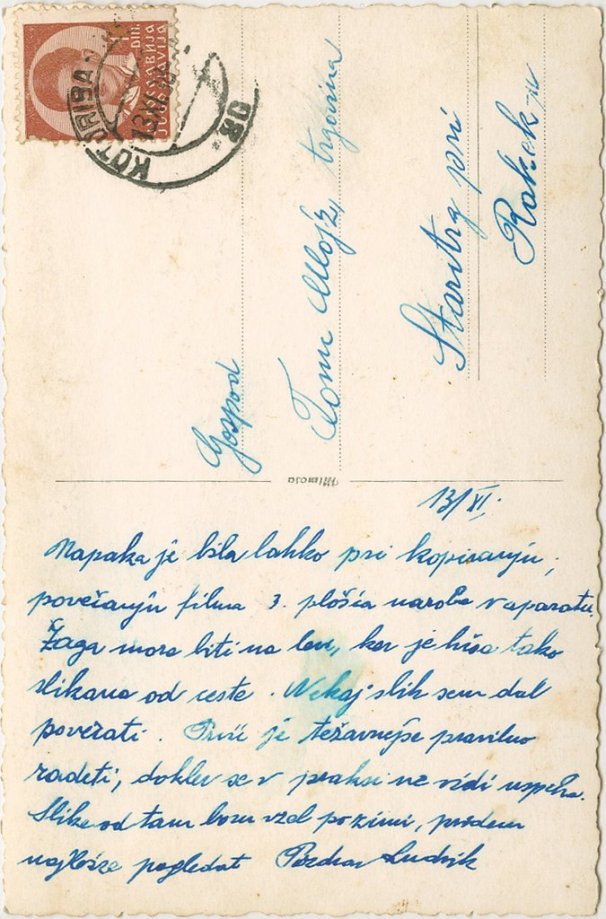 KOTORIBA
13.XI.
DIN.
ЈУГОСЛАВИЈА
JUGOSLAVIJA
Gospod
Tome Alojz, trgovina
Staritrg pri
Rakek-u
Mimosa
13/XI.
Napaka je bila lahko pri kopiranju,
povečanju filma 3. plošča narobe v aparatu.
Žaga mora biti na levi, ker je hiša tako
slikana od ceste. Nekaj slik sem dal
povečati. Prvič je težavnejše pravilno
zadeti, dokler se v praksi ne vidi uspeha.
Slike od tam bom vzel pozimi, pridem
najbrže pogledat Pozdrav Ludvik